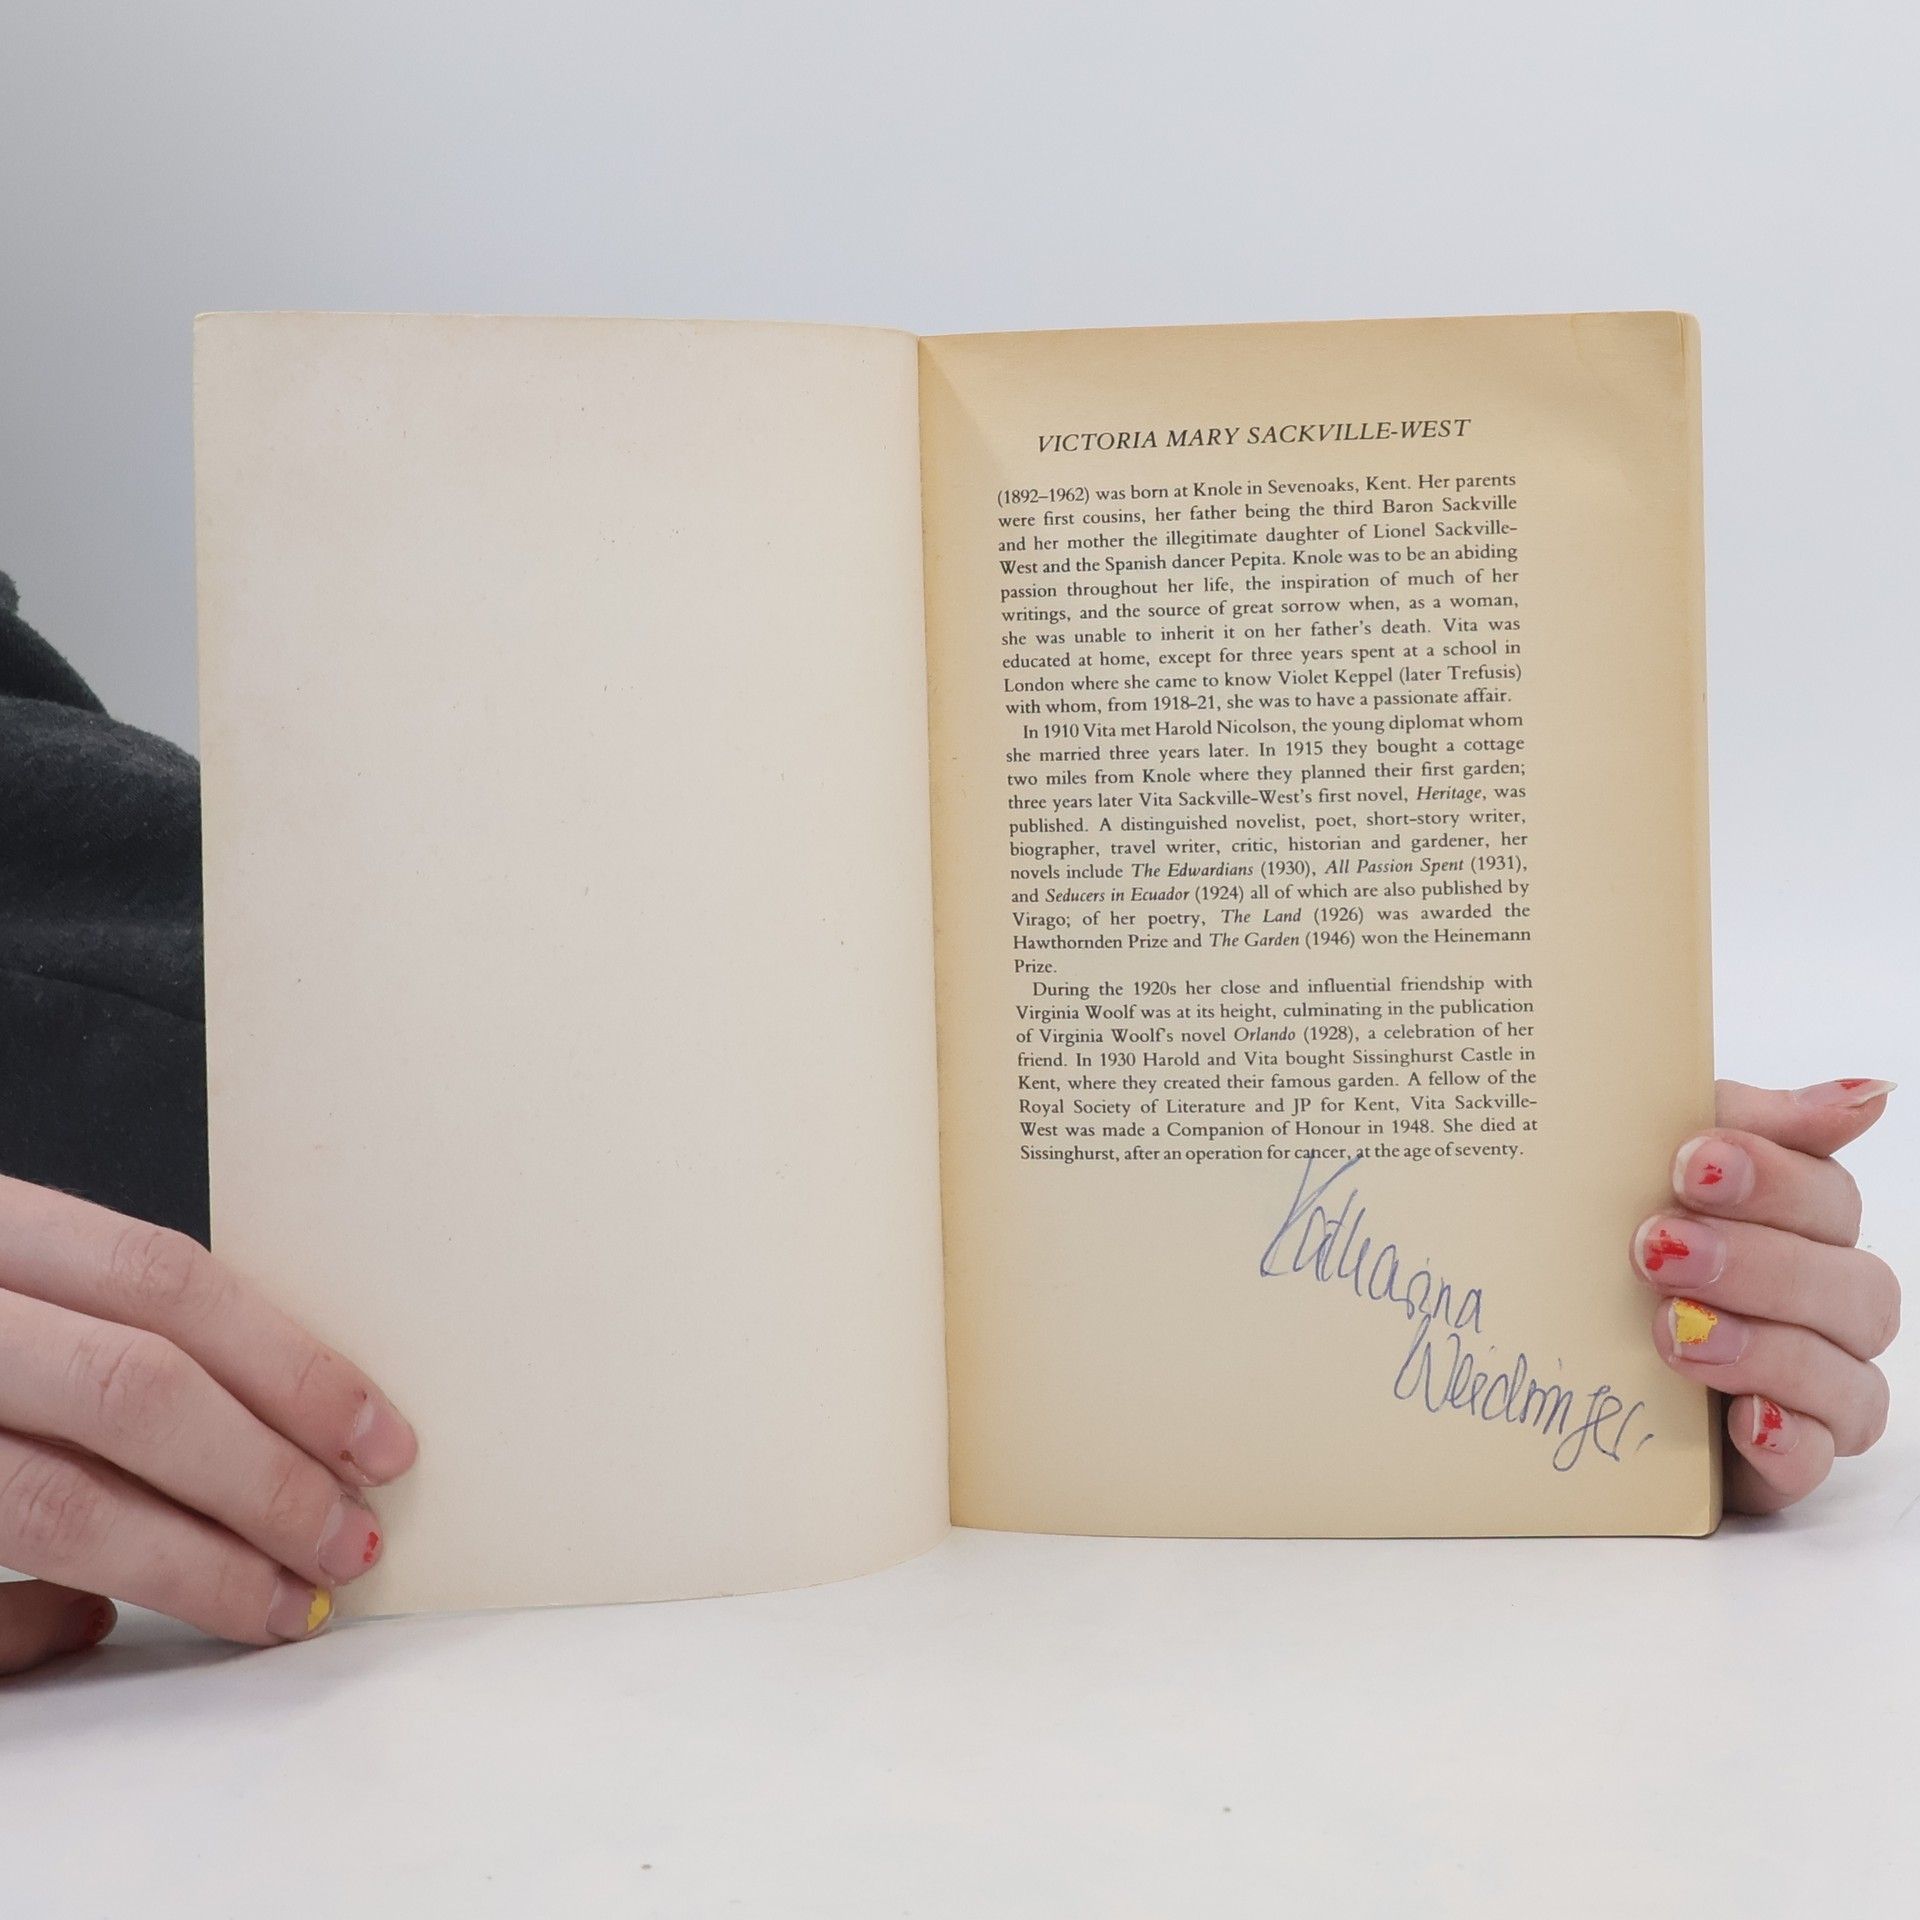 VICTORIA MARY SACKVILLE-WEST
(1892–1962) was born at Knole in Sevenoaks, Kent. Her parents
were first cousins, her father being the third Baron Sackville
and her mother the illegitimate daughter of Lionel Sackville-
West and the Spanish dancer Pepita. Knole was to be an abiding
passion throughout her life, the inspiration of much of her
writings, and the source of great sorrow when, as a woman,
she was unable to inherit it on her father's death. Vita was
educated at home, except for three years spent at a school in
London where she came to know Violet Keppel (later Trefusis)
with whom, from 1918–21, she was to have a passionate affair.
In 1910 Vita met Harold Nicolson, the young diplomat whom
she married three years later. In 1915 they bought a cottage
two miles from Knole where they planned their first garden;
three years later Vita Sackville-West's first novel, Heritage, was
published. A distinguished novelist, poet, short-story writer,
biographer, travel writer, critic, historian and gardener, her
novels include The Edwardians (1930), All Passion Spent (1931),
and Seducers in Ecuador (1924) all of which are also published by
Virago; of her poetry, The Land (1926) was awarded the
Hawthornden Prize and The Garden (1946) won the Heinemann
Prize.
During the 1920s her close and influential friendship with
Virginia Woolf was at its height, culminating in the publication
of Virginia Woolf's novel Orlando (1928), a celebration of her
friend. In 1930 Harold and Vita bought Sissinghurst Castle in
Kent, where they created their famous garden. A fellow of the
Royal Society of Literature and JP for Kent, Vita Sackville-
West was made a Companion of Honour in 1948. She died at
Sissinghurst, after an operation for cancer, at the age of seventy.
Katharina
Weidinger.